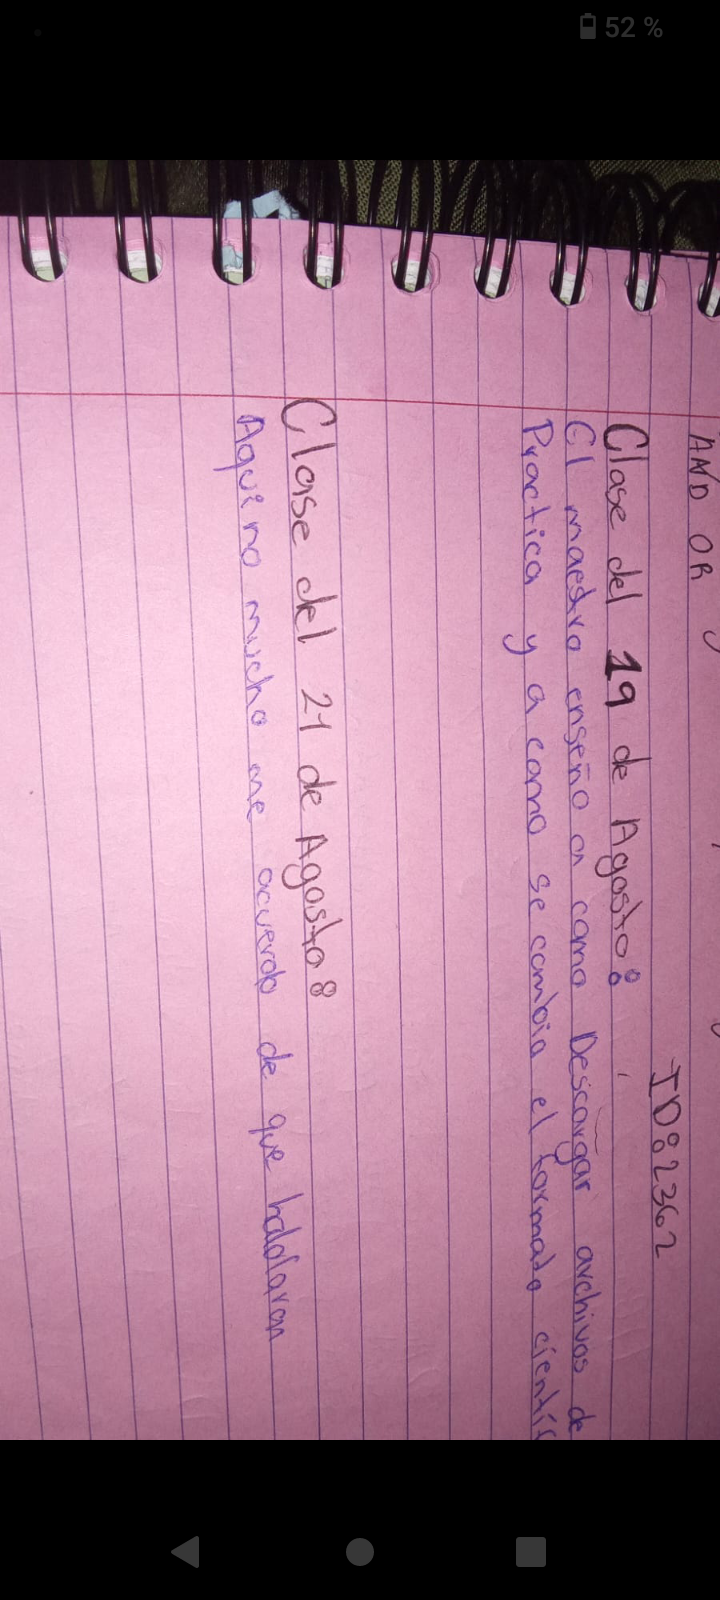 52 %
AND OR
ID: 82362
Clase del 19 de Agosto:
El maestro enseño a como Descargar archivos de
Practica y a como se cambia el formato cientific
Clase del 21 de Agosto:
Aqui no mucho me acuerdo de que hablaran